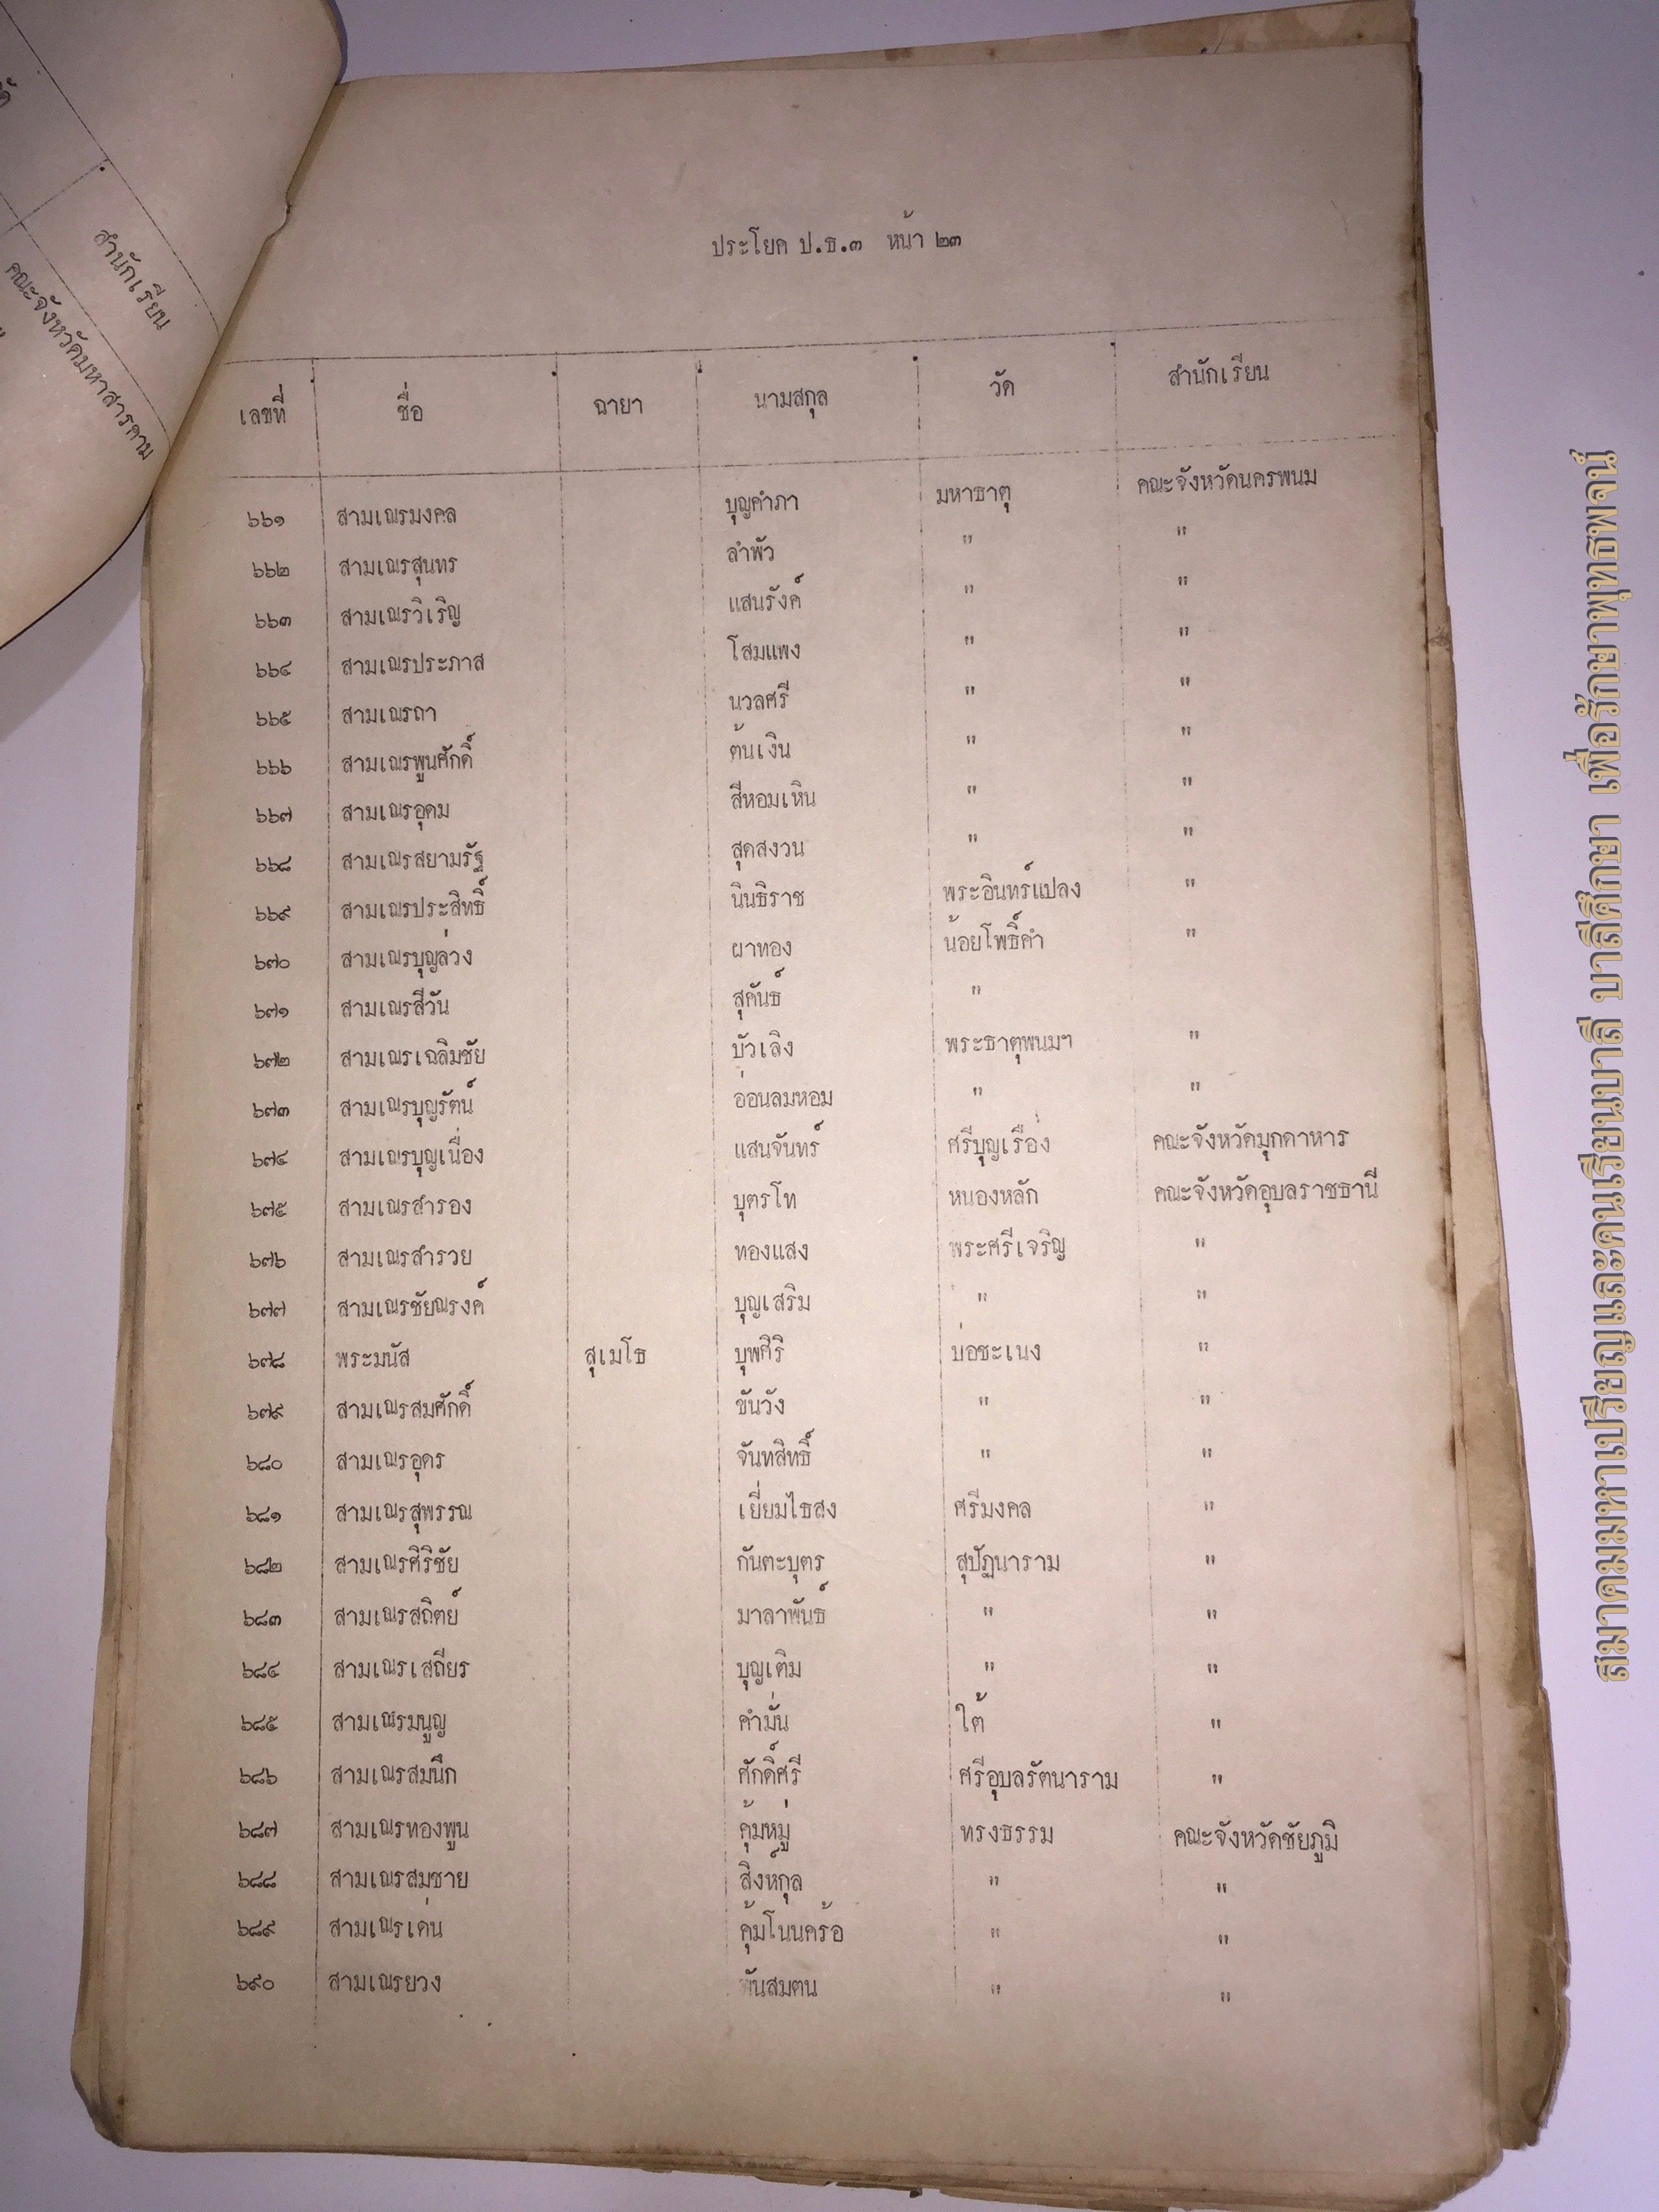 สำนักเรียน
คณะจังหวัดมหาสารคาม
ประโยค ป.ธ.๓ หน้า ๒๓
เลขที่ ชื่อ ฉายา นามสกุล วัด สำนักเรียน
๖๖๑ สามเณรมงคล บุญคำภา มหาธาตุ คณะจังหวัดนครพนม
๖๖๒ สามเณรสุนทร ลำพัว " "
๖๖๓ สามเณรวิเริญ แสนรังค์ " "
๖๖๔ สามเณรประภาส โสมแพง " "
๖๖๕ สามเณรถา นวลศรี " "
๖๖๖ สามเณรพูนศักดิ์ ต้นเงิน " "
๖๖๗ สามเณรอุดม สีหอมเหิน " "
๖๖๘ สามเณรสยามรัฐ สุดสงวน " "
๖๖๙ สามเณรประสิทธิ์ นินธิราช พระอินทร์แปลง "
๖๗๐ สามเณรบุญล่วง ผาทอง น้อยโพธิ์คำ "
๖๗๑ สามเณรสีวัน สุคันธ์ "
๖๗๒ สามเณรเฉลิมชัย บัวเลิง พระธาตุพนมฯ "
๖๗๓ สามเณรบุญรัตน์ อ่อนลมหอม " "
๖๗๔ สามเณรบุญเนื่อง แสนจันทร์ ศรีบุญเรือง คณะจังหวัดมุกดาหาร
๖๗๕ สามเณรสำรอง บุตรโท หนองหลัก คณะจังหวัดอุบลราชธานี
๖๗๖ สามเณรสำรวย ทองแสง พระศรีเจริญ "
๖๗๗ สามเณรชัยณรงค์ บุญเสริม " "
๖๗๘ พระมนัส สุเมโธ บุพศิริ บ่อชะเนง "
๖๗๙ สามเณรสมศักดิ์ ขันวัง " "
๖๘๐ สามเณรอุดร จันทสิทธิ์ " "
๖๘๑ สามเณรสุพรรณ เยี่ยมไธสง ศรีมงคล "
๖๘๒ สามเณรศิริชัย กันตะบุตร สุปัฏนาราม "
๖๘๓ สามเณรสถิตย์ มาลาพันธ์ " "
๖๘๔ สามเณรเสถียร บุญเติม " "
๖๘๕ สามเณรมนูญ คำมั่น ใต้ "
๖๘๖ สามเณรสมนึก ศักดิ์ศรี ศรีอุบลรัตนาราม "
๖๘๗ สามเณรทองพูน คุ้มหมู่ ทรงธรรม คณะจังหวัดชัยภูมิ
๖๘๘ สามเณรสมชาย สิงห์กุล " "
๖๘๙ สามเณรเด่น คุ้มโนนคร้อ " "
๖๙๐ สามเณรยวง พันสมตน " "
สมาคมมหาเปรียญและคนเรียนบาลี บาลีศึกษา เพื่อรักษาพุทธพจน์